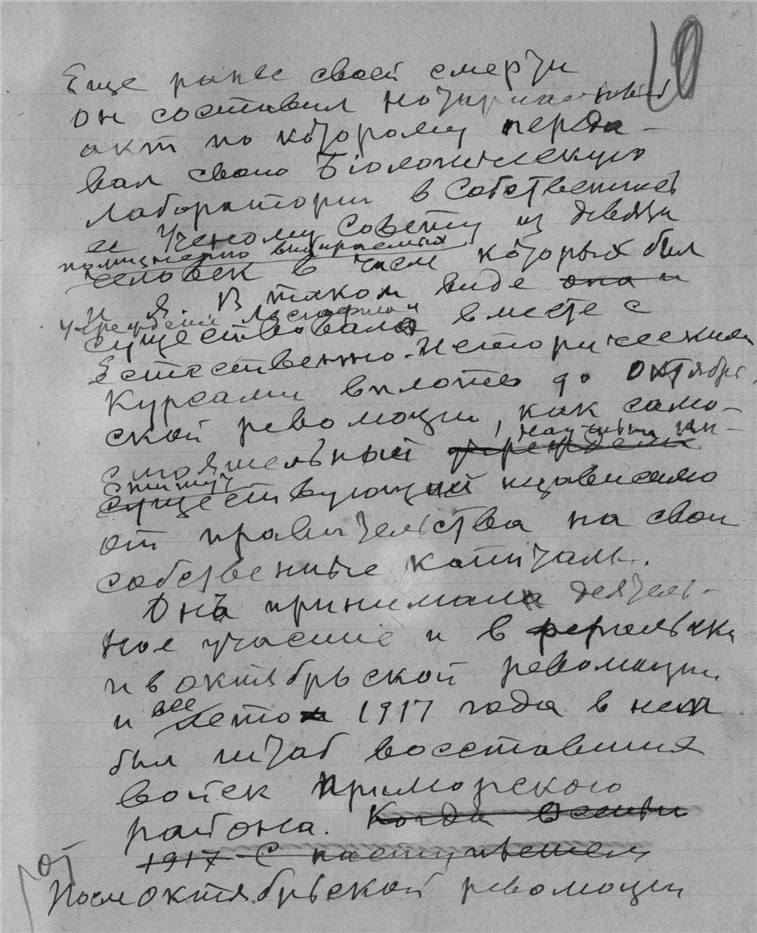 10
Еще ранее своей смерти
он составил нотариальный
акт по которому переда-
вал свою Биологическую
Лабораторию в собственность
ее Ученому Совету из девяти
пожизненно выбираемых
человек в числе которых был
и я. В таком виде она и
учреждение Лесгафта
существовала вместе с
Естественно-Историческими
Курсами вплоть до Октябрь
ской революции, как само-
научный ин-
стоятельный учреждение
ститут
существующий независимо
от правительства на свои
собственные капиталы.
Онъ принимала деятель-
ное участие и в февральской
и в октябрьской революции
и все лето 1917 года в нем
был штаб восставших
войск Приморского
района. Когда осенью
1917 С наступлением
После Октябрьской революции